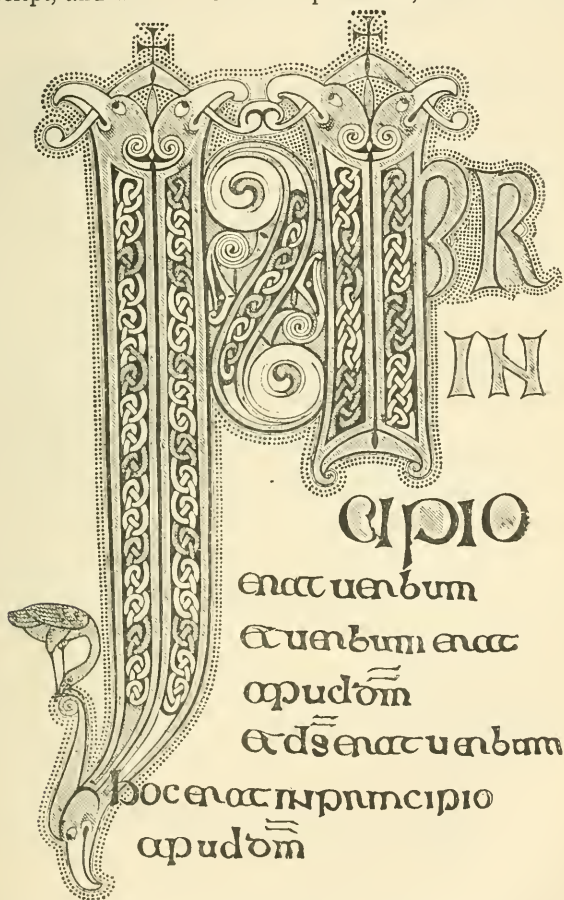 IN PR
IN
CIPIO
erat uerbum
et uerbum erat
apud dm̄
et ds̄ erat uerbum
hoc erat in principio
apud dm̄